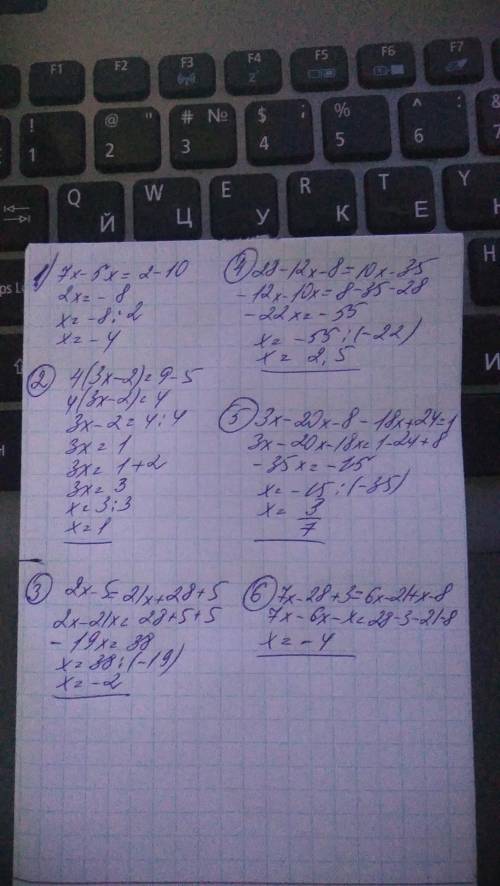 F1 F2 F3 F4 F5 F6 F7
! 1 @ " 2 # № 3 $ ; 4 % 5 ^ : 6 & 7
Q Й W Ц E У R К T Е Y Н
1) 7x-5x=2-10
2x=-8
x=-8:2
x=-4
2 4(3x-2)=9-5
4(3x-2)=4
3x-2=4:4
3x=1
3x=1+2
3x=3
x=3:3
x=1
3 2x-5=21x+28+5
2x-21x=28+5+5
-19x=38
x=38:(-19)
x=-2
4 28-12x-8=10x-35
-12x-10x=8-35-28
-22x=-55
x=-55:(-22)
x=2,5
5 3x-20x-8-18x+24=1
3x-20x-18x=1-24+8
-35x=-15
x=-15:(-35)
x=3/7
6 7x-28+3=6x-21+x-8
7x-6x-x=28-3-21-8
x=-4